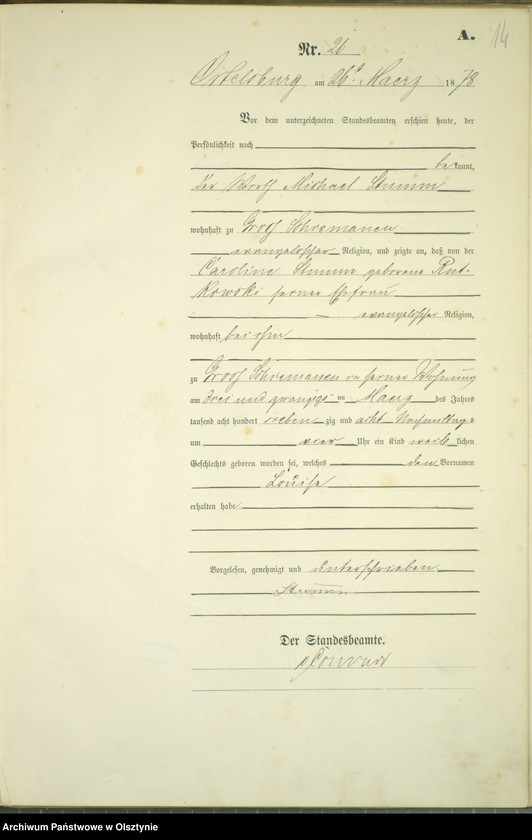 A.
14
Nr. 26
Ortelsburg am 26ten Maerz 1878
Vor dem unterzeichneten Standesbeamten erschien heute, der
Persönlichkeit nach
bekannt,
der Michael Stumm
wohnhaft zu Groß Schiemanen
evangelischer Religion, und zeigte an, daß von der
Caroline Stumm geborene Rut-
kowski seiner Ehefrau
evangelischer Religion,
wohnhaft bei ihm
zu Groß Schiemanen in seiner Wohnung
am drei und zwanzigs ten Maerz des Jahres
tausend acht hundert sieben zig und acht Nachmittags
um vier Uhr ein Kind weiblichen
Geschlechts geboren worden sei, welches den Vornamen
Louise
erhalten habe.
Vorgelesen, genehmigt und unterschrieben
Stumm
Der Standesbeamte.
Archiwum Państwowe w Olsztynie